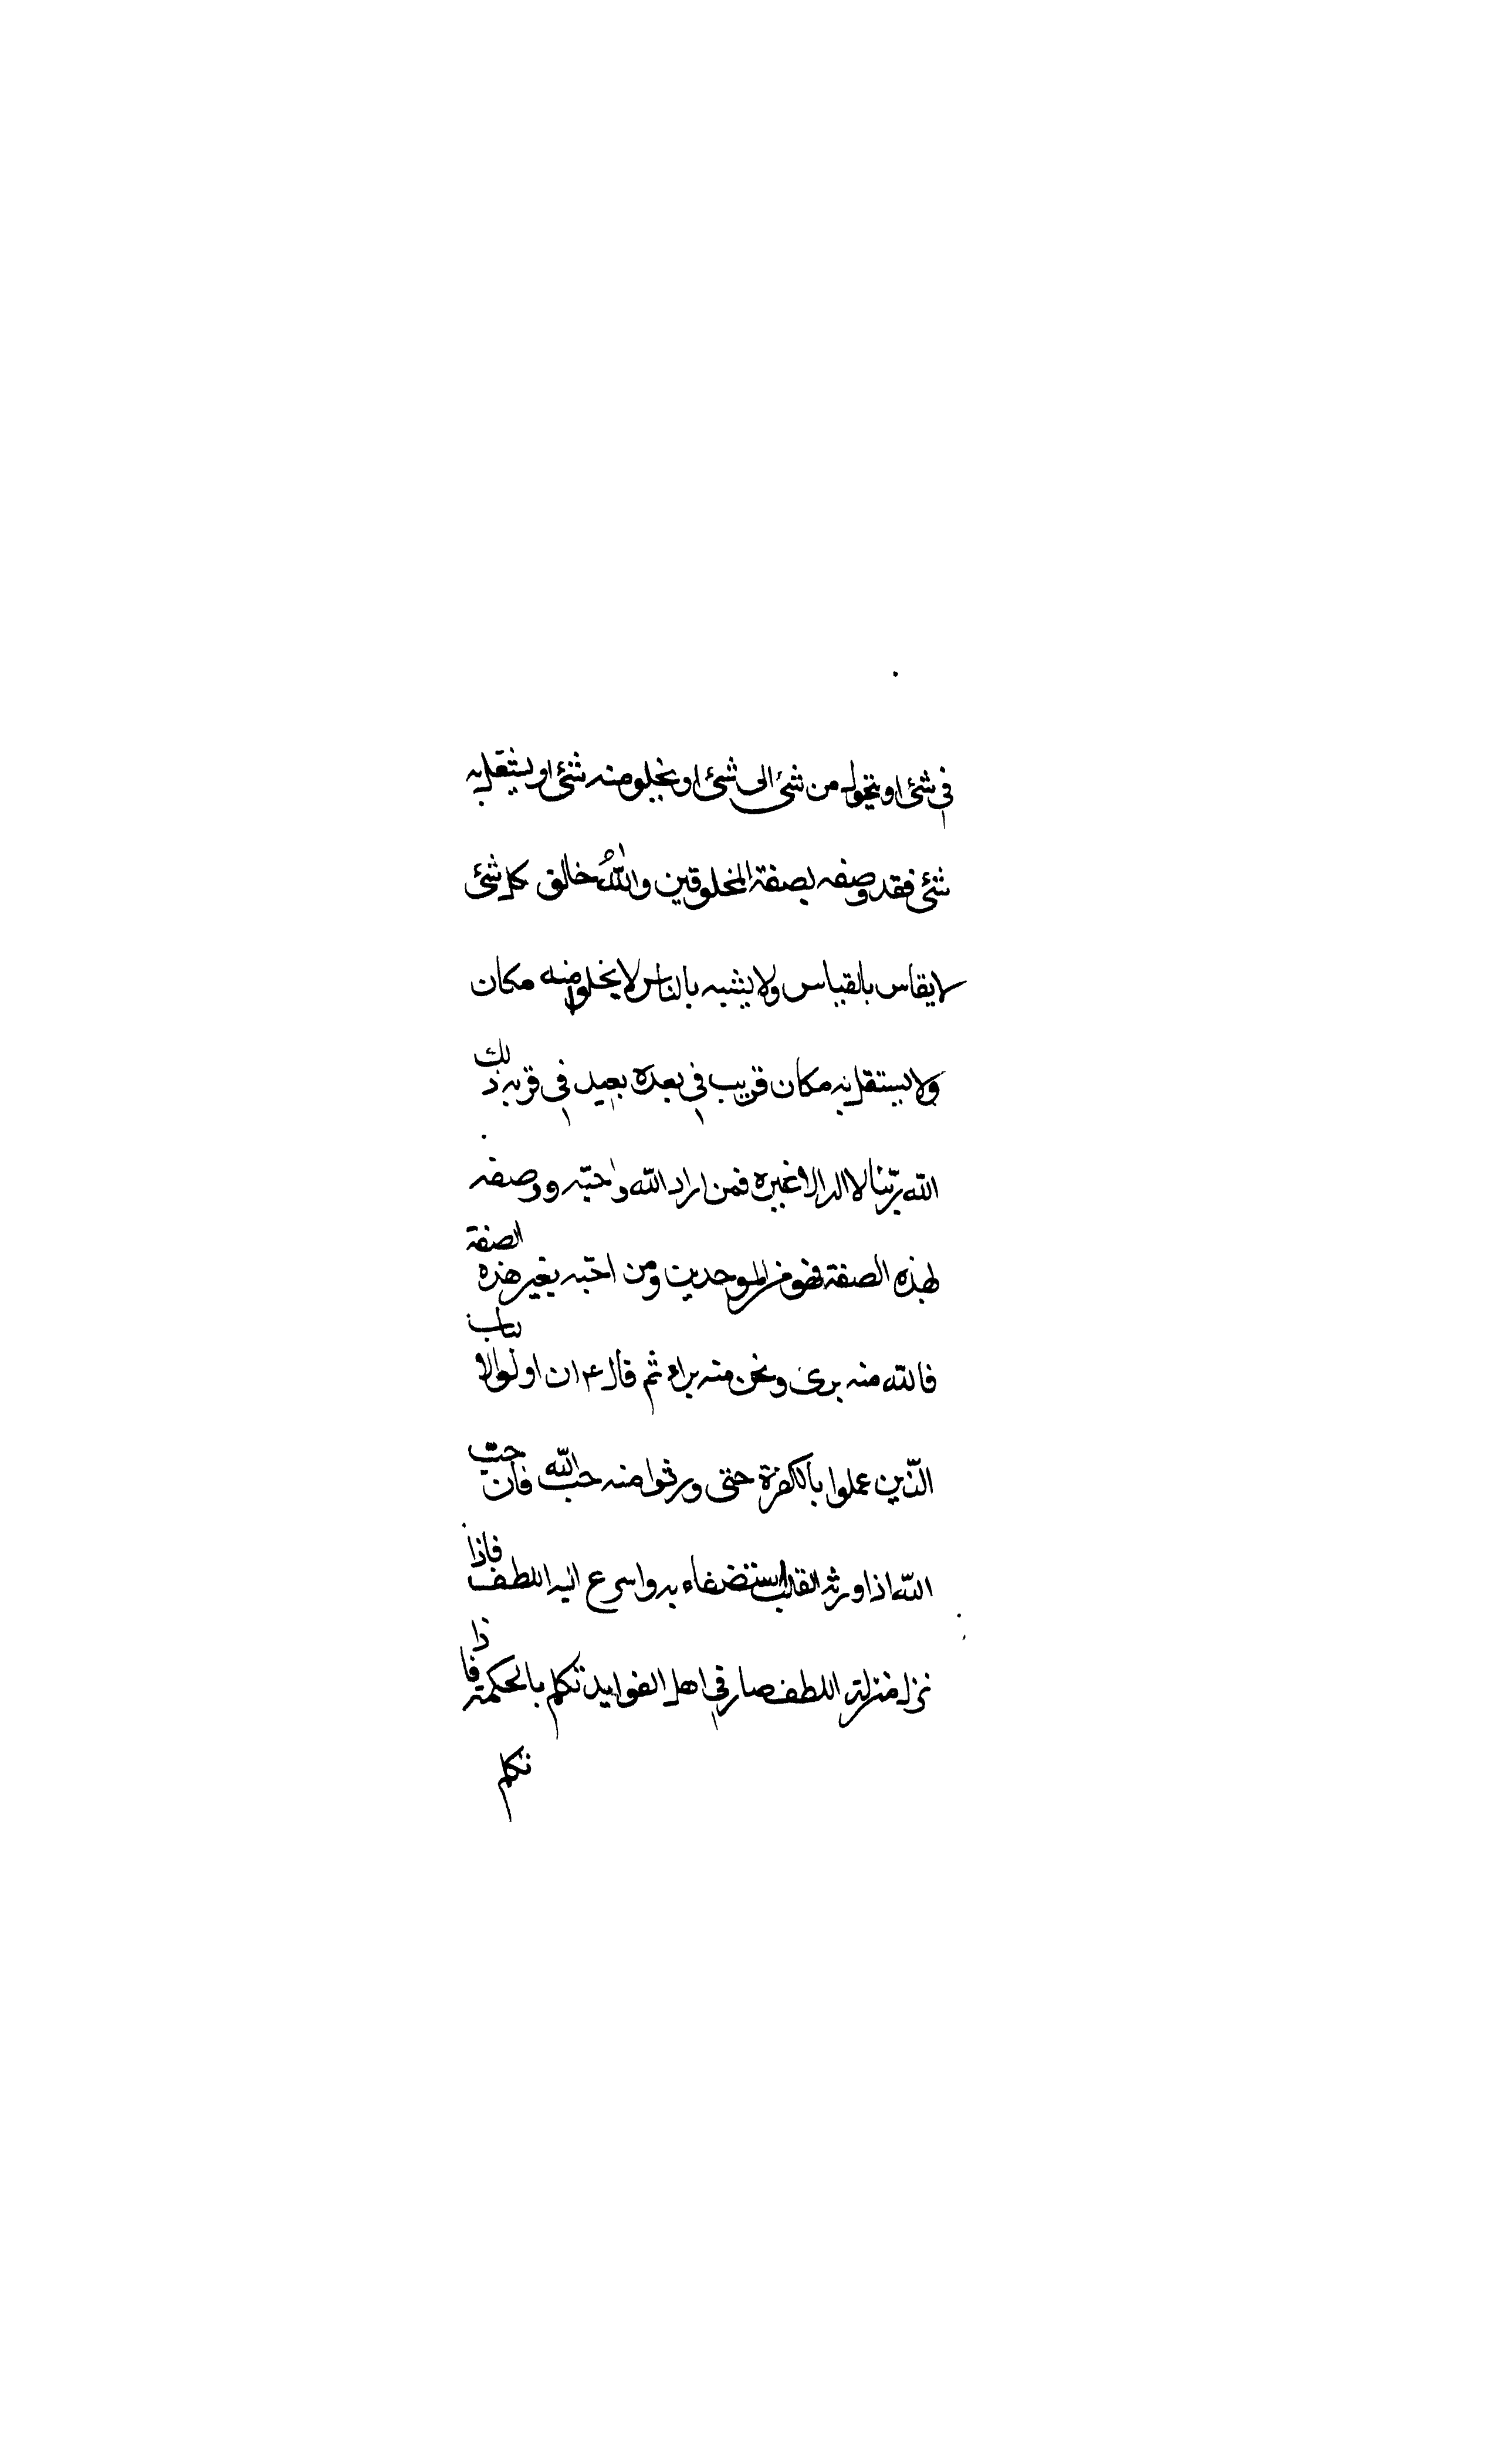 في شئ او يتحول من شئ الى شئ او يخلو منه شئ او يشتغل به
شئ فقد وصفه بصفة المخلوقين والله خالق كل شئ
لا يقاس بالقياس ولا يشبه بالناس لا يخلو منه مكان
ولا يستقل به مكان قريب في بعده بعيد في قربه ذلك
الله ربّنا لا اله الا غيره فمن اراد الله واحبّه ووصفه
لهذه الصفة فهو من الموحدين ومن احبّه بغير هذه الصفة
فالله منه برئ ونحن منه براء ثم قال ع ان اولوالالباب
الّذين عملوا بالفكرة حتى ورثوا منه حب الله فان حبّ
الله اذا ورثه القلب استضاء به واسرع اليه اللطف فاذا
نزل منزلة اللطف صار في اهل الفوايد تكلم بالحكمة فاذا
تكلم